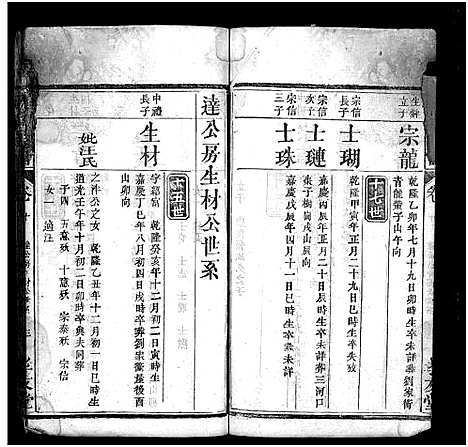 生材
立子
宗龍
乾隆乙卯年七月十九日卯時生卒未詳葬劉家衖
青龍嘴子山午向
十七世
宗信
長子
士瑚
乾隆甲寅年正月二十九日巳時生卒失攷
宗信
次子
士璉
嘉慶丙辰年正月二十日辰時生卒未詳葬三河口
張子樹崗戌山辰向
宗信
三子
士珠
嘉慶戊辰年四月十一日巳時生卒葬未詳
達公房生材公世系
十五世
中禮
長子
生材
乾隆癸亥年十二月初二日寅時生
嘉慶丁巳年八月初四日戌時卒葬劉家衖屋後酉
山卯向
妣汪氏
之沛公之女 乾隆乙丑年十二月初一日巳時生
道光壬午年十月初二日卯時卒與夫同葬
子四 五意殀 十意殀 宗泰殀 宗信
女一 適汪